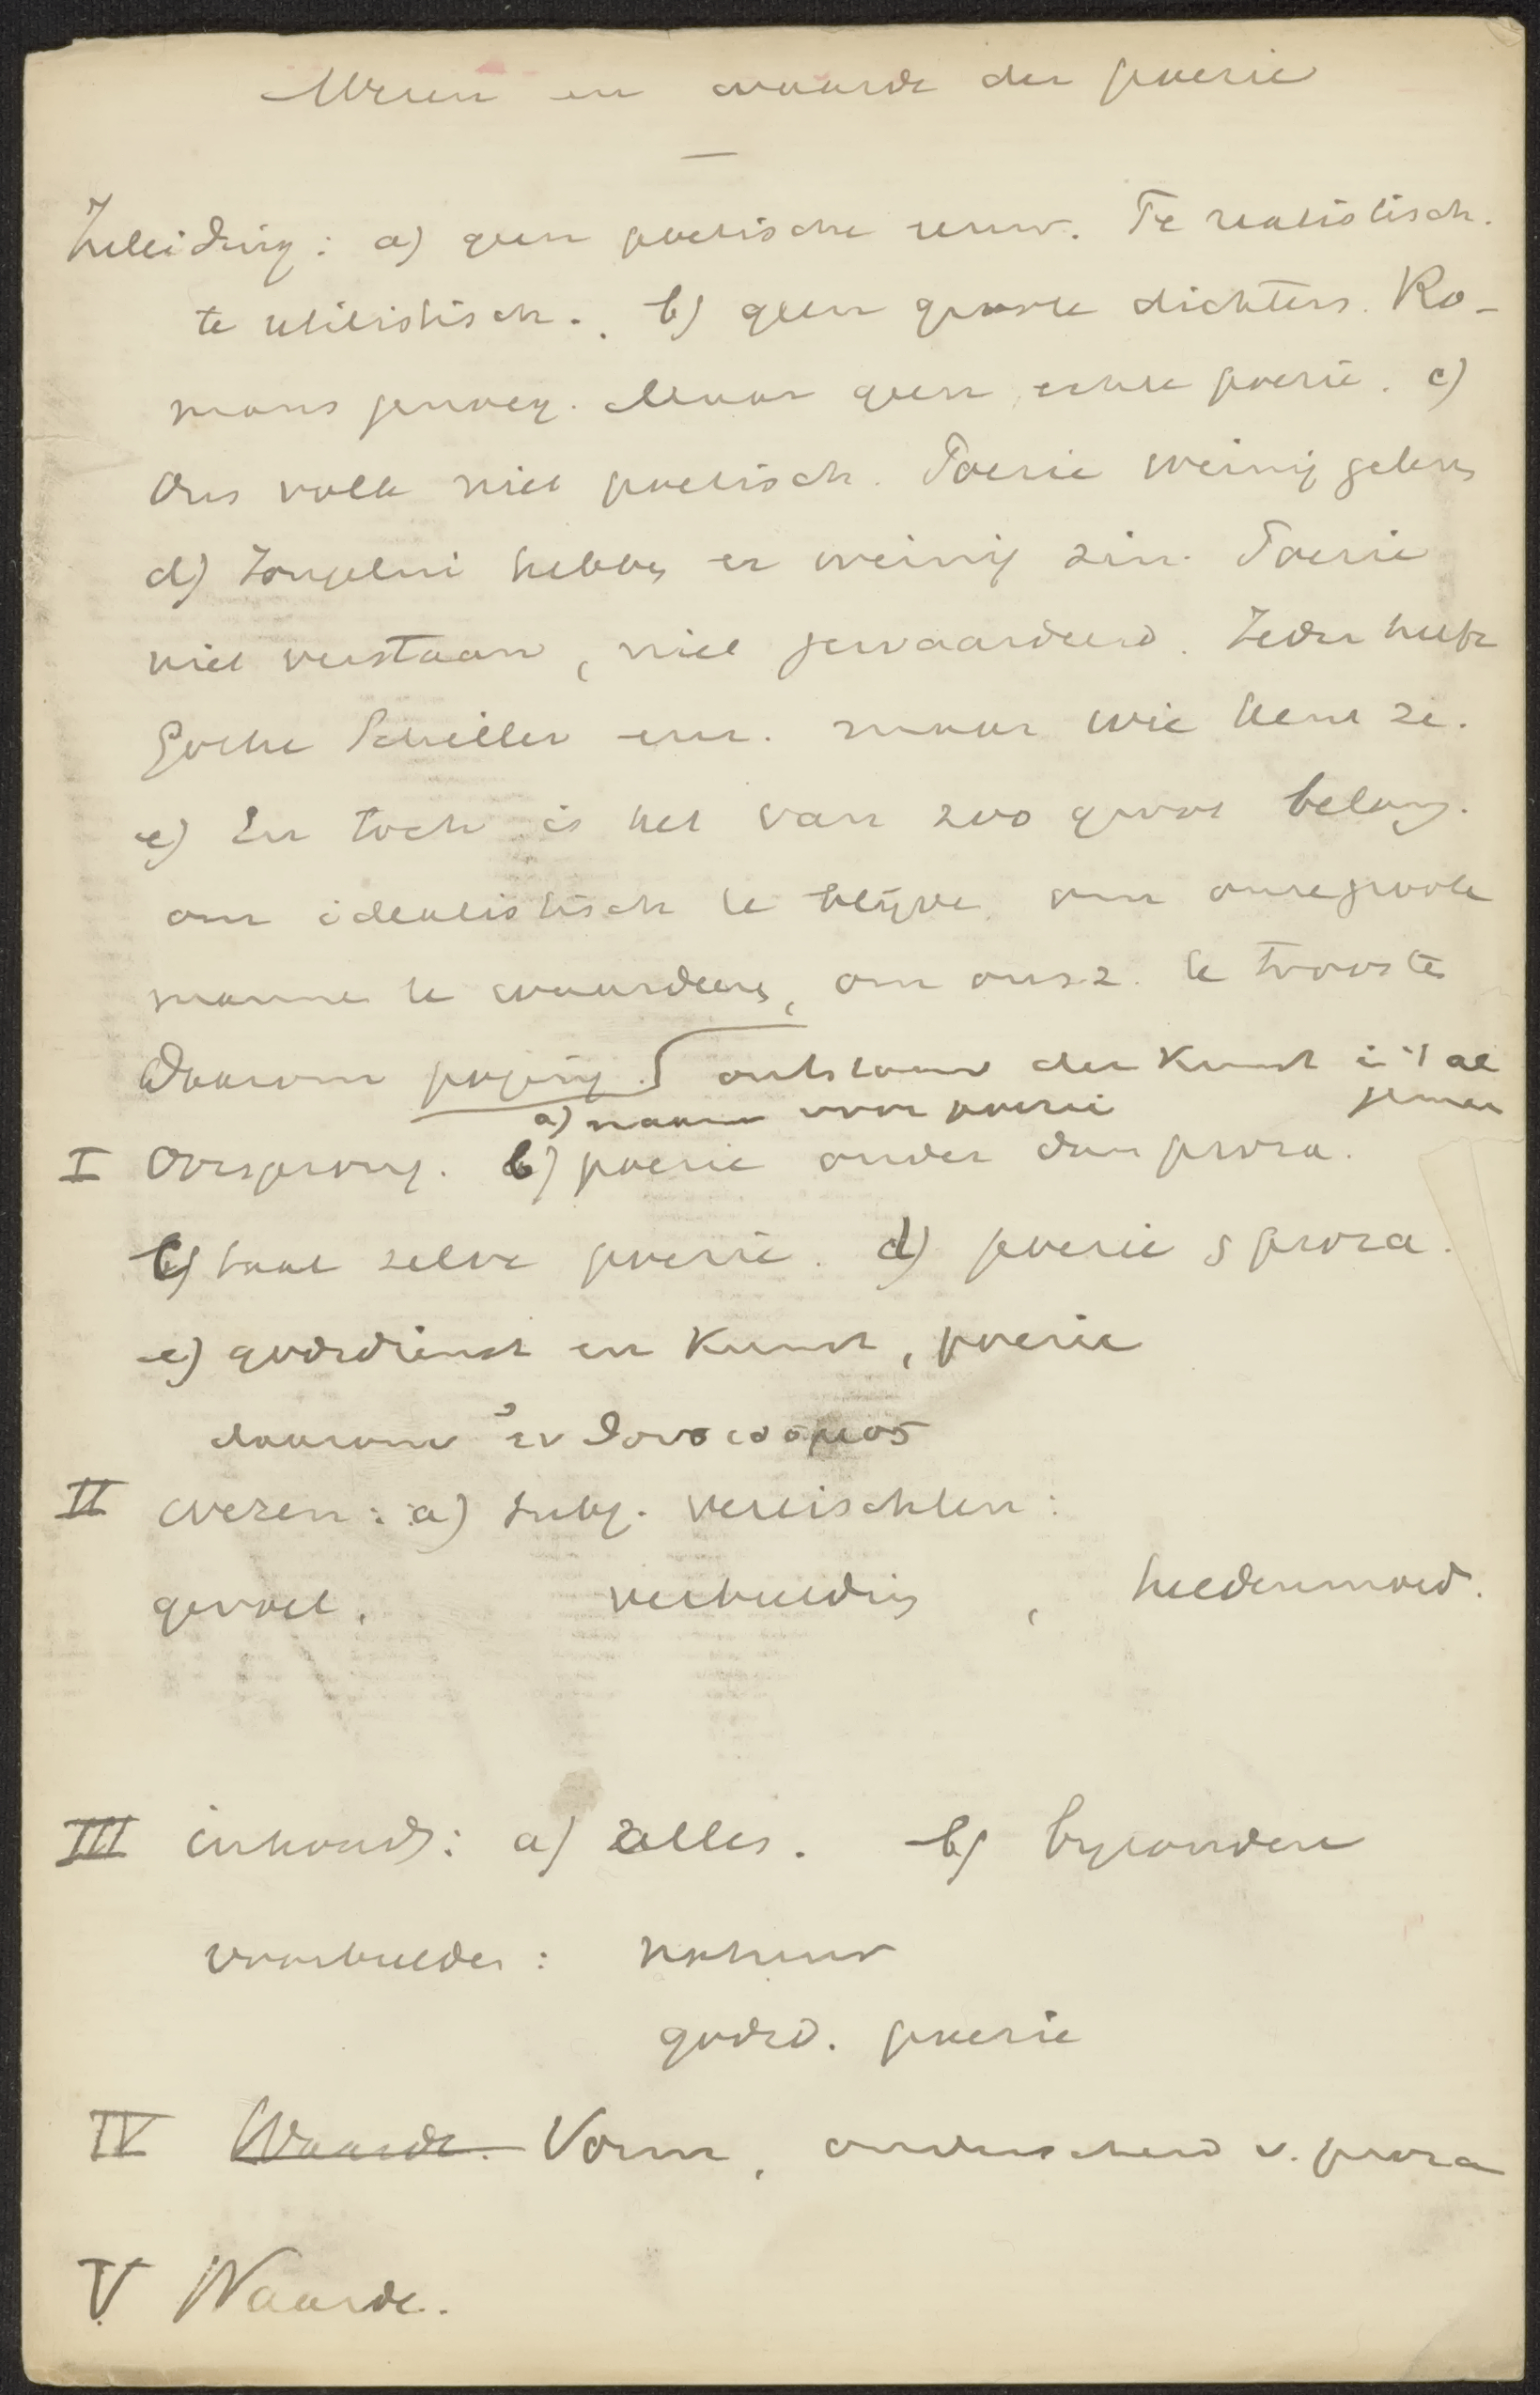 Wezen en waarde der poezie
Inleiding: a) geen poetische eeuw. Te realistisch.
te utilistisch. b) geen groote dichters. Ro-
mans genoeg. Maar geen echte poezie. c)
Ons volk niet poetisch. Poezie weinig gelezen
d) Jongelui hebben er weinig zin. Poezie
niet verstaan, niet gewaardeerd. Ieder heeft
Gothe Schiller enz. maar wie kent ze.
e) En toch is het van zoo groot belang.
om idealistisch te blijve om onze groote
manne te waardeeren, om onsz. te trooste
Daarom poging. ontstaan der Kunst i 't al
gemeen
a) naam voor poezie
I Oorsprong. b) poezie ouder dan proza.
c) taal zelve poezie. d) poezie & proza.
e) godsdienst en Kunst, poezie
daarom
II wezen: a) subj. vereischten:
gevoel, verbeelding, heldenmoed.
III inhoud: a) alles. b) byzondere
voorbeelden: natuur
godsd. poezie
IV Waarde. Vorm, onderscheid v. proza
V Waarde.